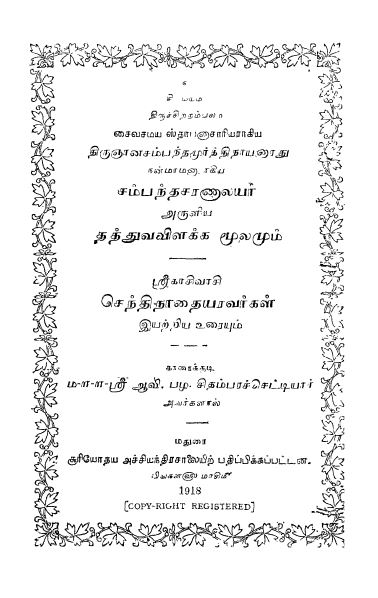 உ
சிவமயம்
திருச்சிற்றம்பலம்
சைவசமய ஸ்தாபனாசாரியராகிய
திருஞானசம்பந்தமூர்த்திநாயனாரது
நன்மாணாகராகிய
சம்பந்தசரணாலயர்
அருளிய
தத்துவவிளக்க மூலமும்
ஸ்ரீகாசிவாசி
செந்திநாதையரவர்கள்
இயற்றிய உரையும்
காரைக்குடி
ம-ள-ள-ஸ்ரீ ஆவி. பழ. சிதம்பரச்செட்டியார்
அவர்களால்
மதுரை
சூரியோதய அச்சியந்திரசாலையிற் பதிப்பிக்கப்பட்டன.
பிங்கள௵ மாசி௴
1918
[COPY-RIGHT REGISTERED]